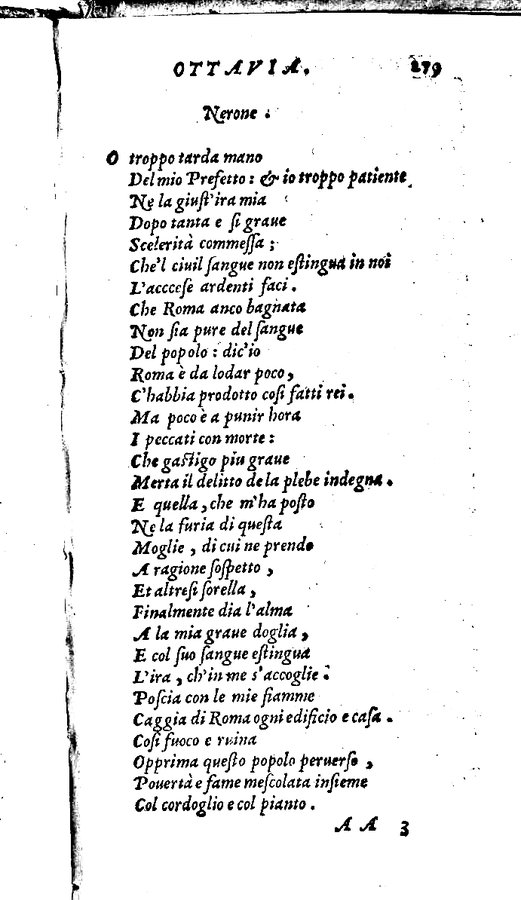 OTTAVIA. 279
Nerone.
O troppo tarda mano
Del mio Prefetto: & io troppo patiente
Ne la giuſt'ira mia
Dopo tanta e ſi graue
Scelerità commeſſa;
Che'l ciuil ſangue non eſtingua in noi
L'acceſe ardenti faci.
Che Roma anco bagnata
Non ſia pure del ſangue
Del popolo: dic'io
Roma è da lodar poco,
C'habbia prodotto coſi fatti rei.
Ma poco è a punir hora
I peccati con morte:
Che gaſtigo piu graue
Merta il delitto de la plebe indegna.
E quella, che m'ha poſto
Ne la furia di queſta
Moglie, di cui ne prendo
A ragione ſoſpetto,
Et altreſi ſorella,
Finalmente dia l'alma
A la mia graue doglia,
E col ſuo ſangue eſtingua
L'ira, ch'in me s'accoglie:
Poſcia con le mie fiamme
Caggia di Roma ogni edificio e caſa.
Coſi fuoco e ruina
Opprima queſto popolo peruerſo,
Pouertà e fame meſcolata inſieme
Col cordoglio e col pianto.
AA 3